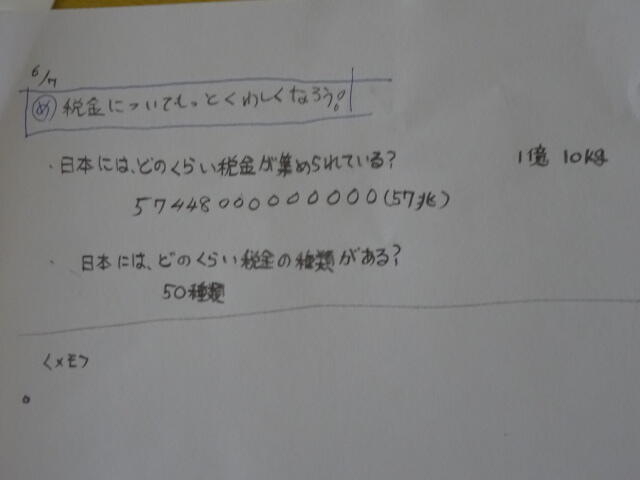 6/7
め 税金についてもっとくわしくなろう!
・日本には、どのくらい税金が集められている?
1億 10kg
57448000000000(57兆)
・日本には、どのくらい税金の種類がある?
50種類
<メモ>
。